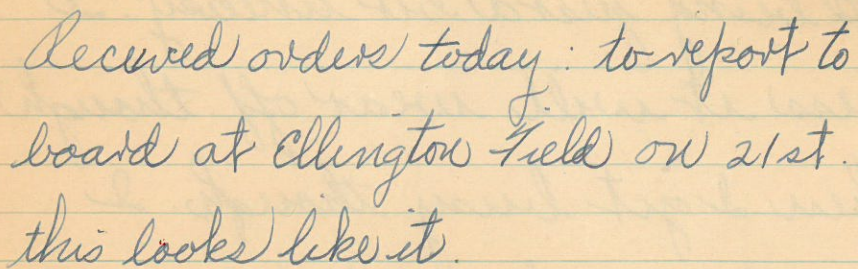 Received orders today: to report to
board at Ellington Field on 21st.
this looks like it.